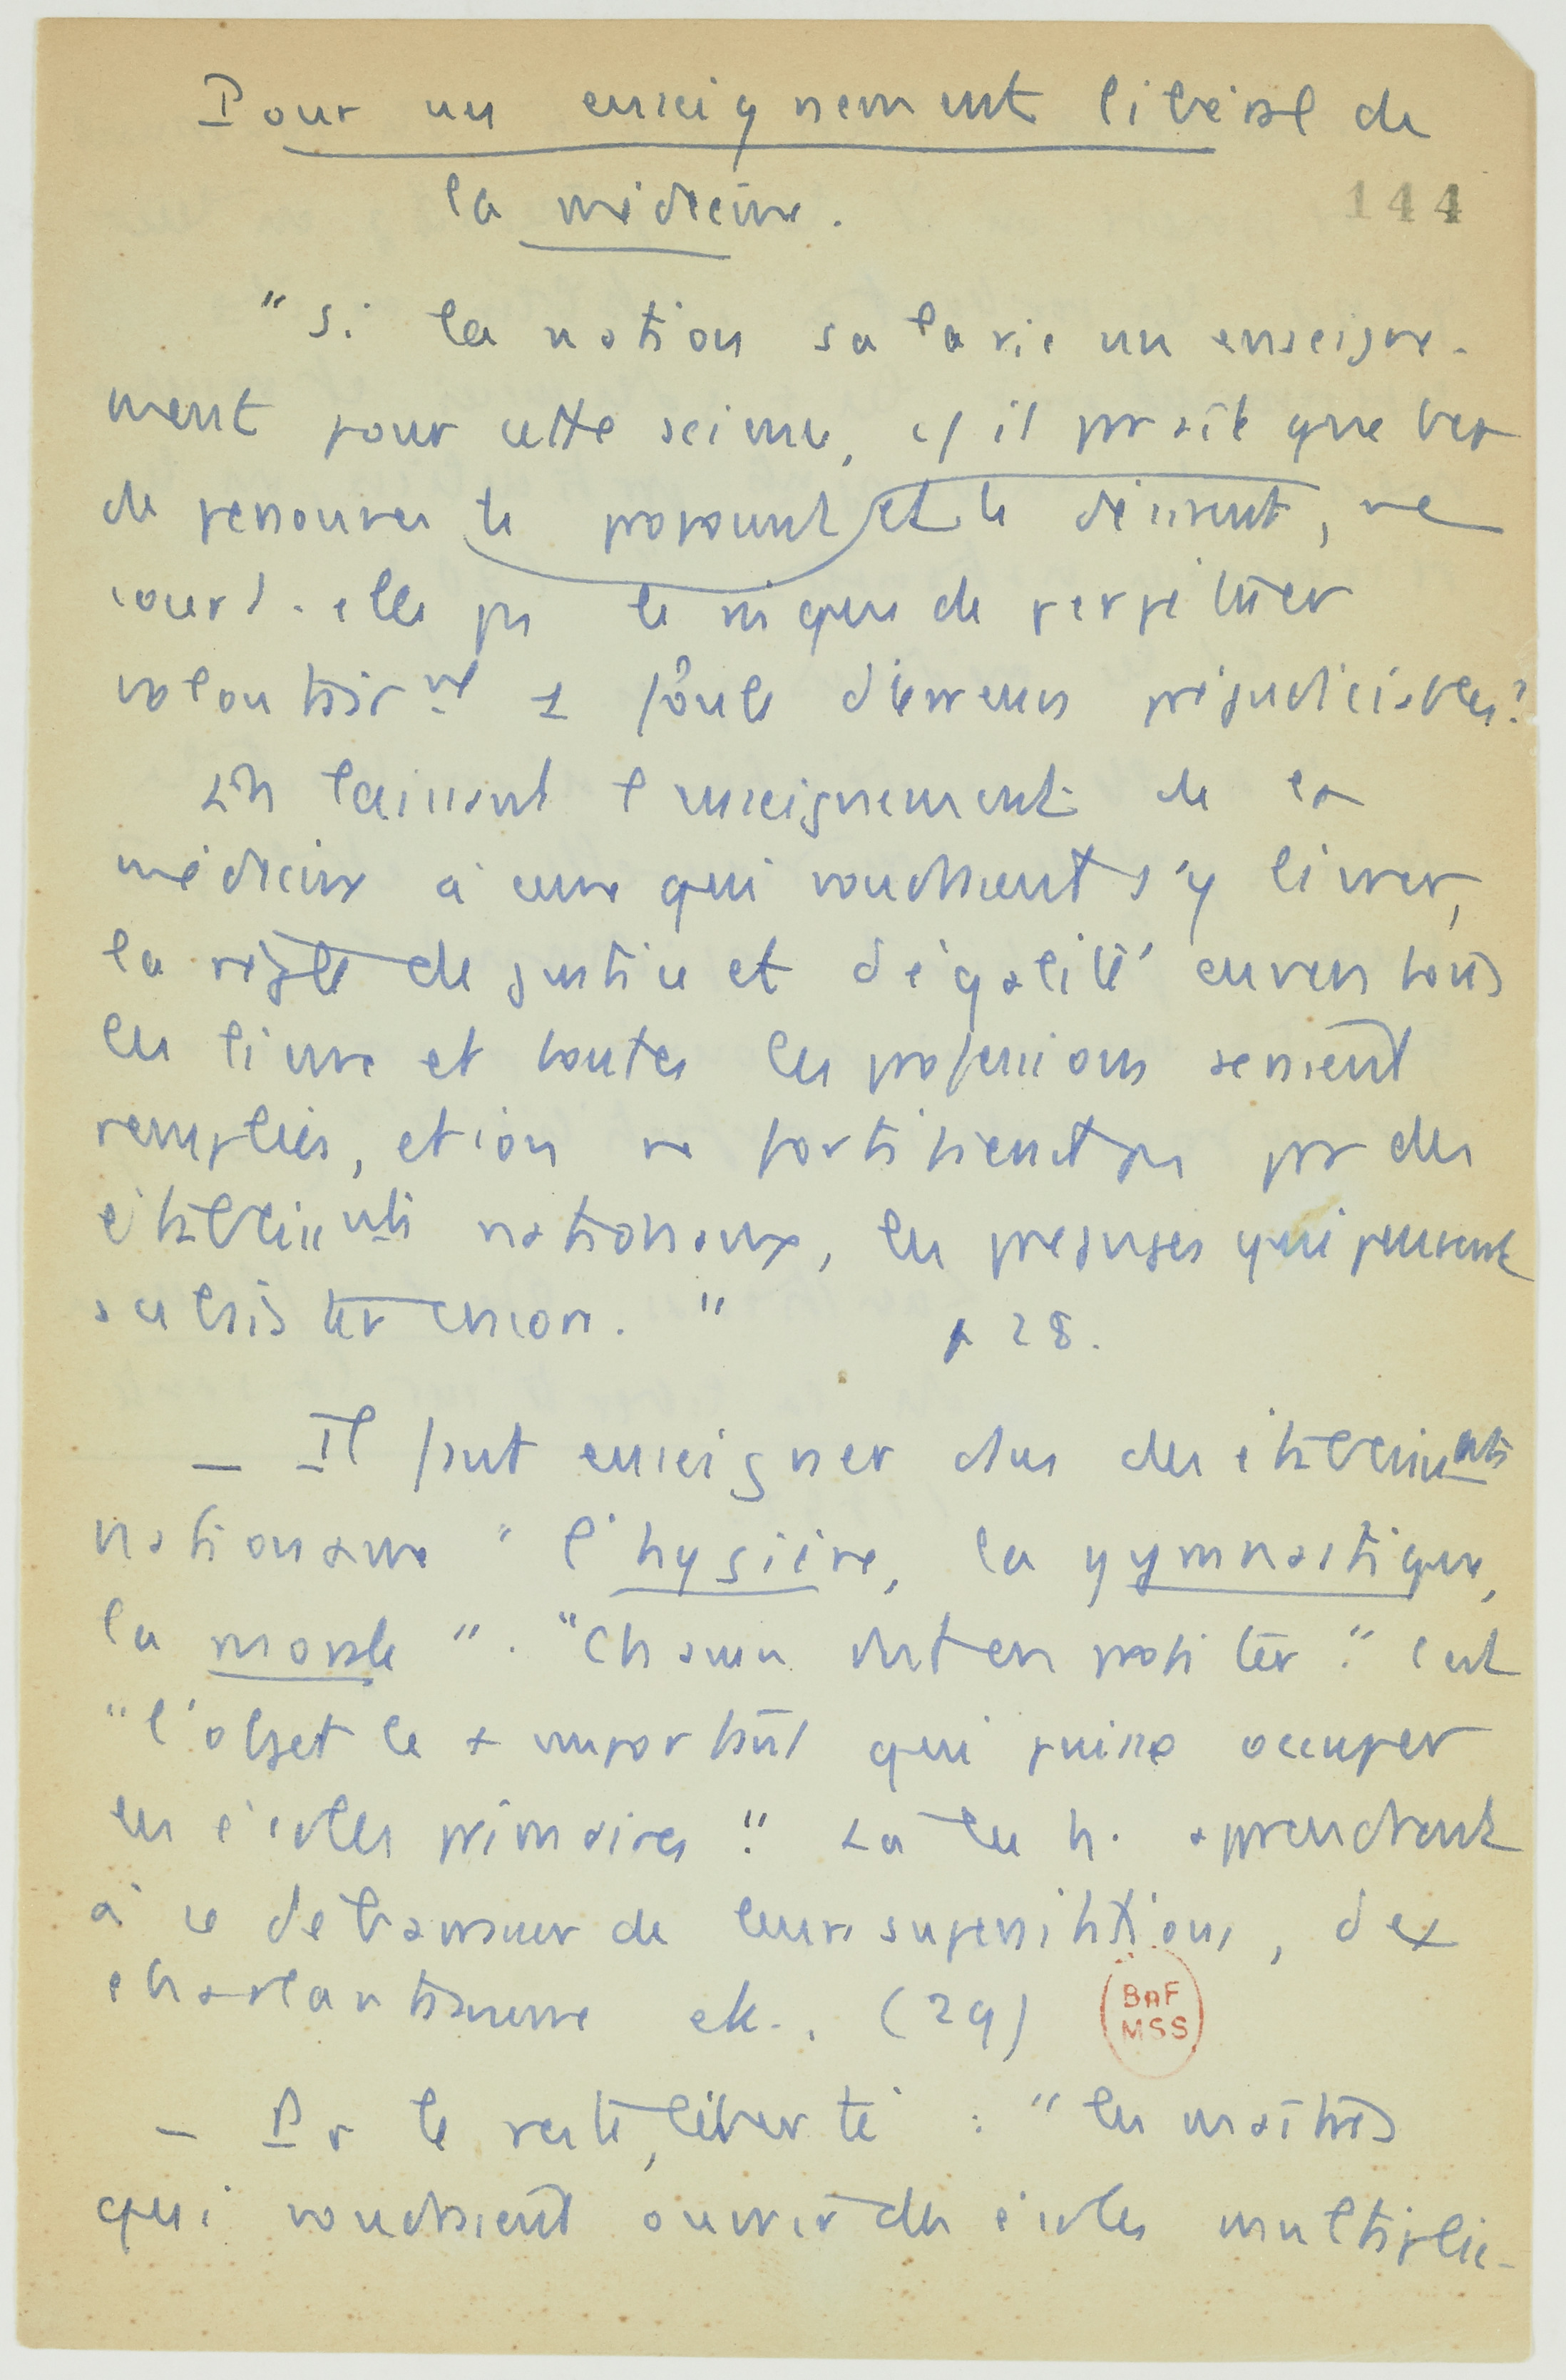 Pour un enseignement libéral de
la médecine.
144
"Si la nation salarie un enseigne-
ment pour cette science, cf il paraît que bcp
de personnes le proposent et le désirent, ne
court-elle pas le risque de perpétuer
volontair^nt une foule d'erreurs préjudiciables?
En laissant l'enseignement de la
médecine à ceux qui voudraient s'y livrer,
la règle de justice et d'égalité envers tous
les lieux et toutes les professions seraient
remplies, et on ne fortifierait pas par des
établiss^nts nationaux, les préjugés qui peuvent
subsister encore." p 28.
— Il faut enseigner dans des établiss^nts
nationaux "l'hygiène, la gymnastique,
la morale". "Chacun doit en profiter." C'est
"l'objet le + important qui puisse occuper
les écoles primaires". Là les h. apprendront
à se débarrasser de leurs superstitions, des
charlatans etc.. (29)
BnF
MSS
— Pr le reste, liberté : "les maîtres
qui voudraient ouvrir des écoles multiplie-